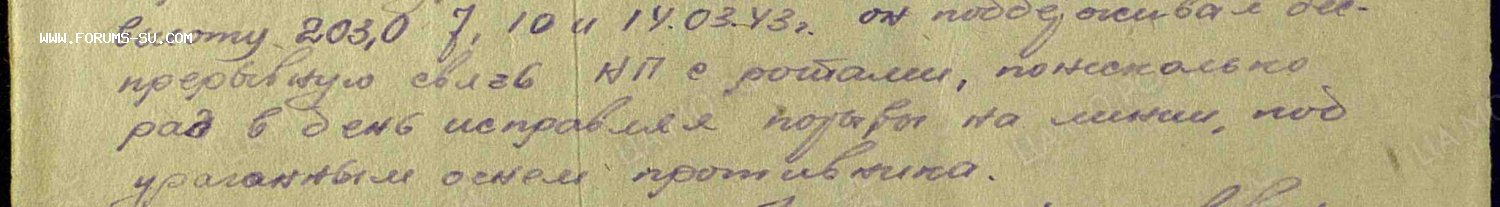 высоту 203,0 7, 10 и 14.03.43г. он поддерживал бес-
WWW.FORUMS-SU.COM
прерывную связь НП с ротами, понесколько
рад в день исправляя порывы на линии, под
ураганным огнем противника.